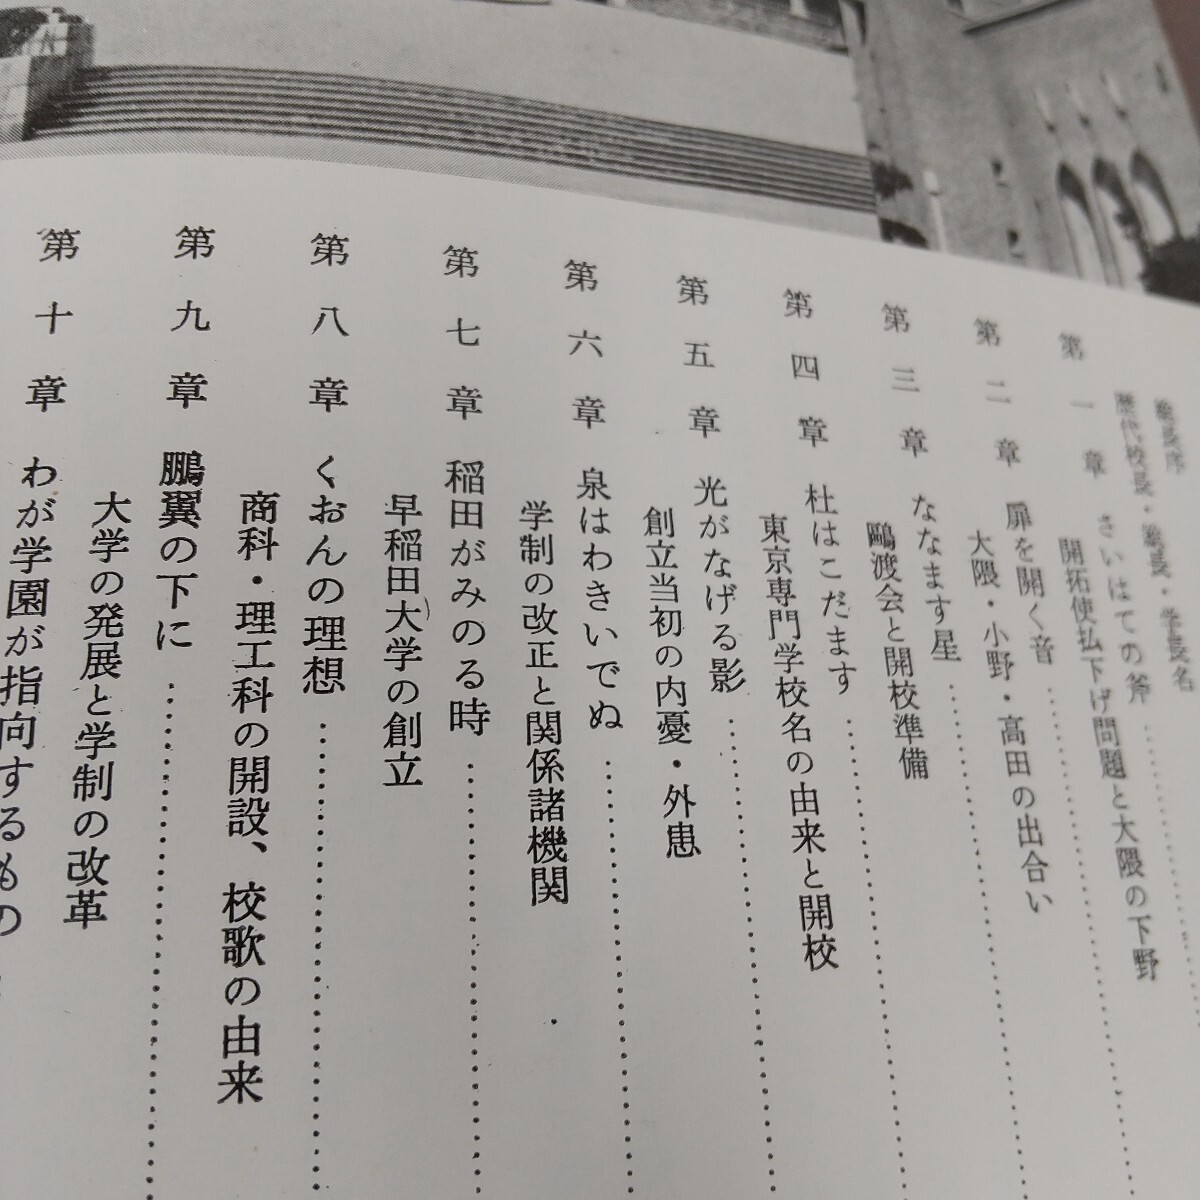 総長序
歴代校長・総長・学長名
第一章 さいはての斧
開拓使払下げ問題と大隈の下野
第二章 扉を開く音
大隈・小野・高田の出合い
第三章 ななます星
鷗渡会と開校準備
第四章 杜はこだます
東京専門学校名の由来と開校
第五章 光がなげる影
創立当初の内憂・外患
第六章 泉はわきいでぬ
学制の改正と関係諸機関
第七章 稲田がみのる時
早稲田大学の創立
第八章 くおんの理想
商科・理工科の開設、校歌の由来
第九章 鵬翼の下に
大学の発展と学制の改革
第十章 わが学園が指向するもの